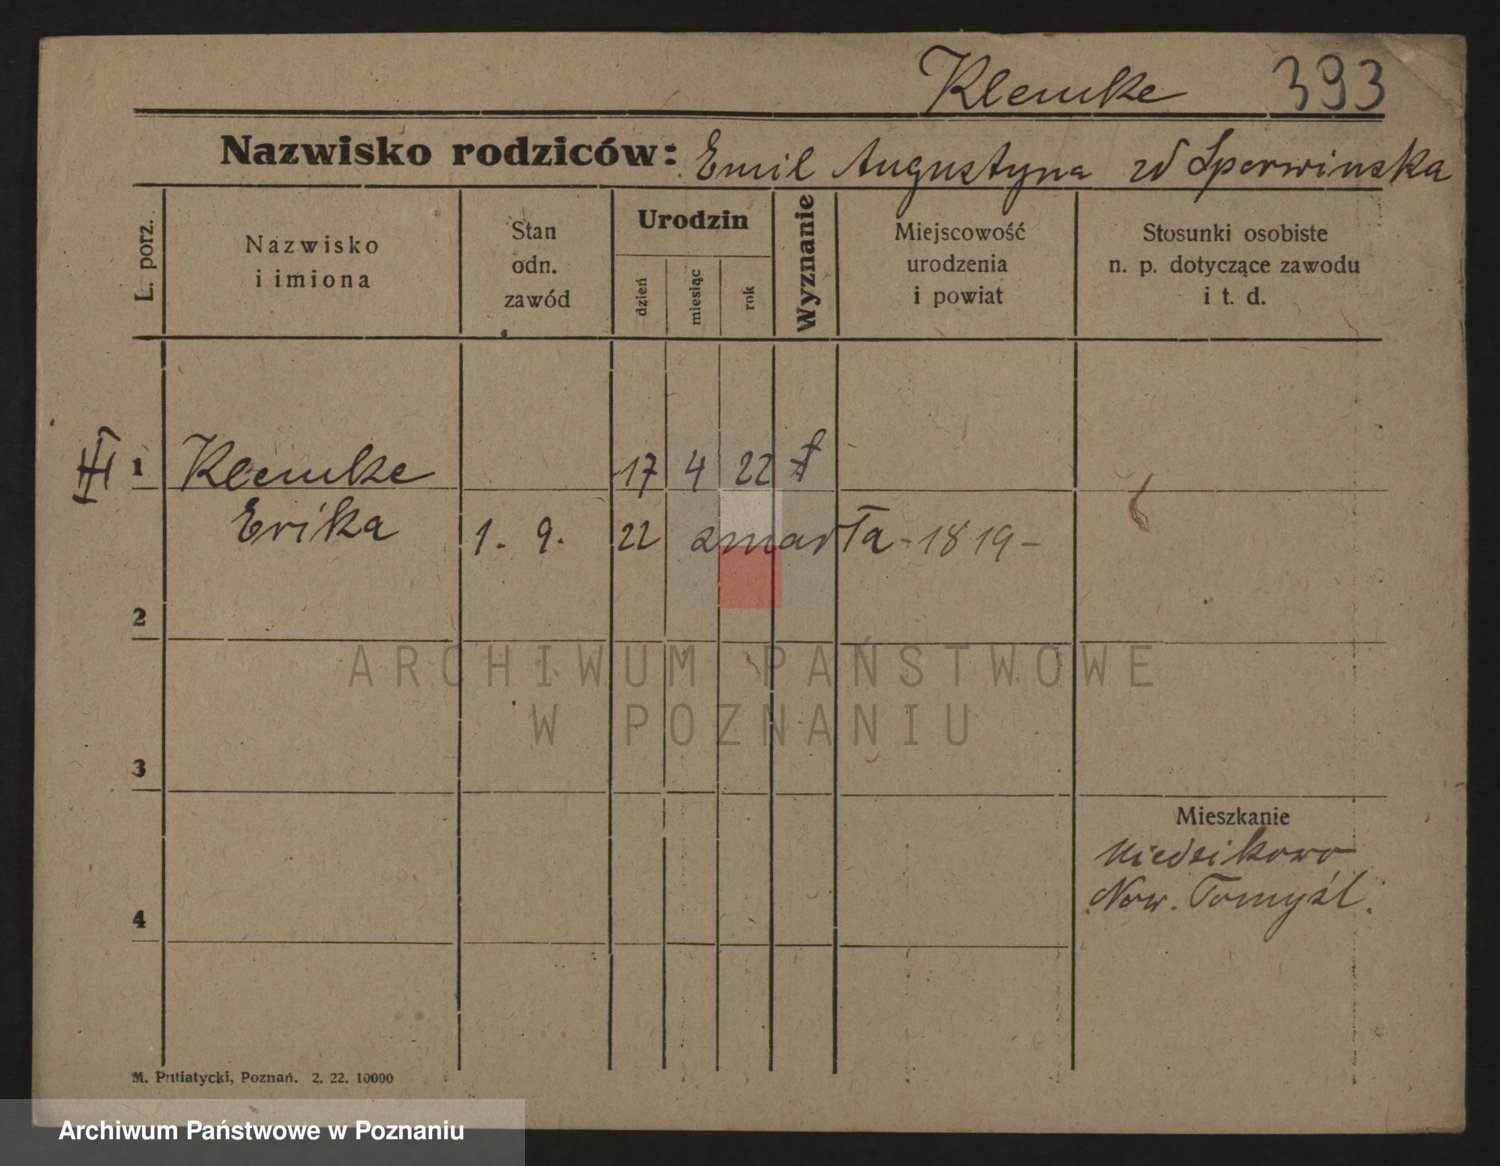 Klemke 393
Nazwisko rodziców: Emil Augustyna zd Sperwinska
L. porz.
Nazwisko
i imiona
Stan
odn.
zawód
Urodzin
dzień
miesiąc
rok
Wyznanie
Miejscowość
urodzenia
i powiat
Stosunki osobiste
n. p. dotyczące zawodu
i t. d.
III 1 Klemke 17 4 22 †
Erika 1. 9. 22 zmarła - 1819 -
2
ARCHIWUM PAŃSTWOWE
W POZNANIU
3
Mieszkanie
Now. Tomyśl.
4
M. Putiatycki, Poznań. 2. 22. 10000
Archiwum Państwowe w Poznaniu